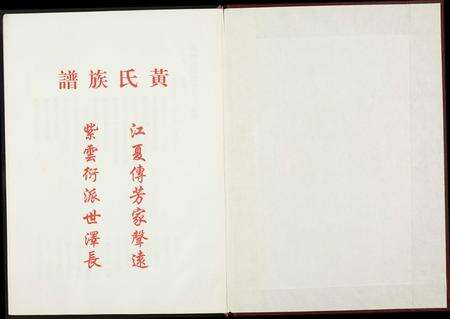 黃氏族譜
江夏傳芳家聲遠
紫雲衍派世澤長